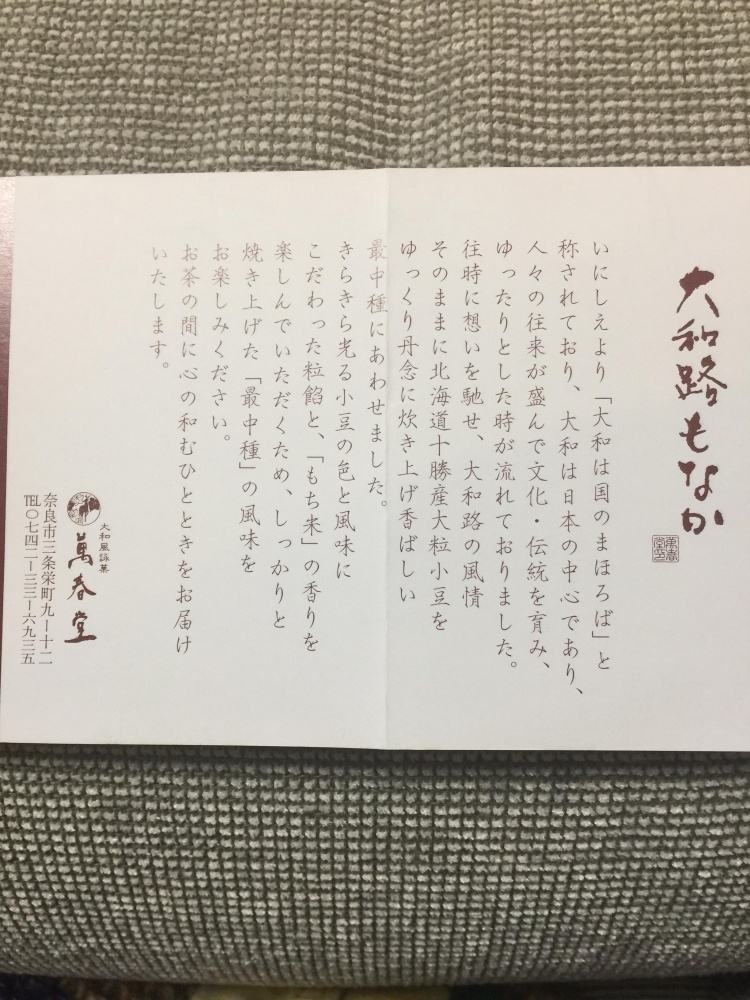 大和路もなか
萬春堂
いにしえより「大和は国のまほろば」と
称されており、大和は日本の中心であり、
人々の往来が盛んで文化・伝統を育み、
ゆったりとした時が流れておりました。
往時に想いを馳せ、大和路の風情
そのままに北海道十勝産大粒小豆を
ゆっくり丹念に炊き上げ香ばしい
最中種にあわせました。
きらきら光る小豆の色と風味に
こだわった粒餡と、「もち米」の香りを
楽しんでいただくため、しっかりと
焼き上げた「最中種」の風味を
お楽しみください。
お茶の間に心の和むひとときをお届け
いたします。
大和風詠菓
萬春堂
奈良市三条栄町九ー十二
TEL〇七四二ー三三ー六九三五